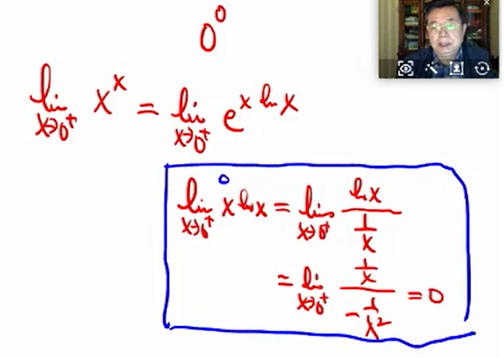 0⁰
lim x→0⁺ xˣ = lim x→0⁺ e^(x ln x)
0
lim x→0⁺ x ln x = lim x→0⁺ (ln x)/(1/x)
= lim x→0⁺ (1/x)/(-1/x²) = 0